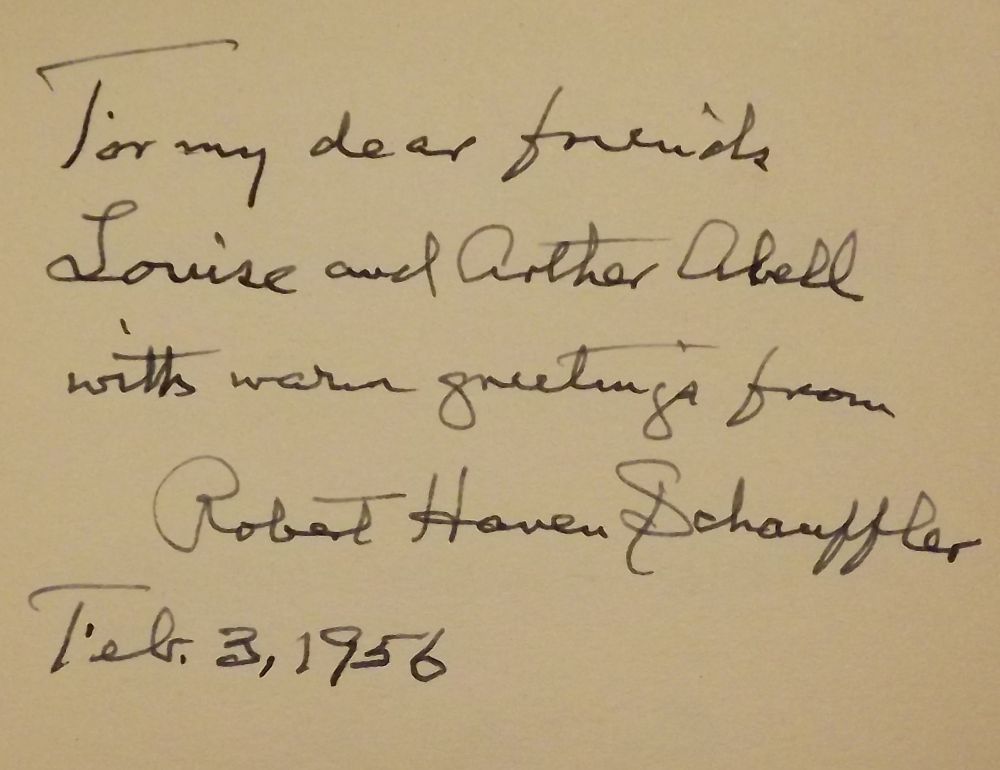 For my dear friends
Louise and Arthur Abell
with warm greetings from
Robert Haven Schauffler
Feb. 3, 1956